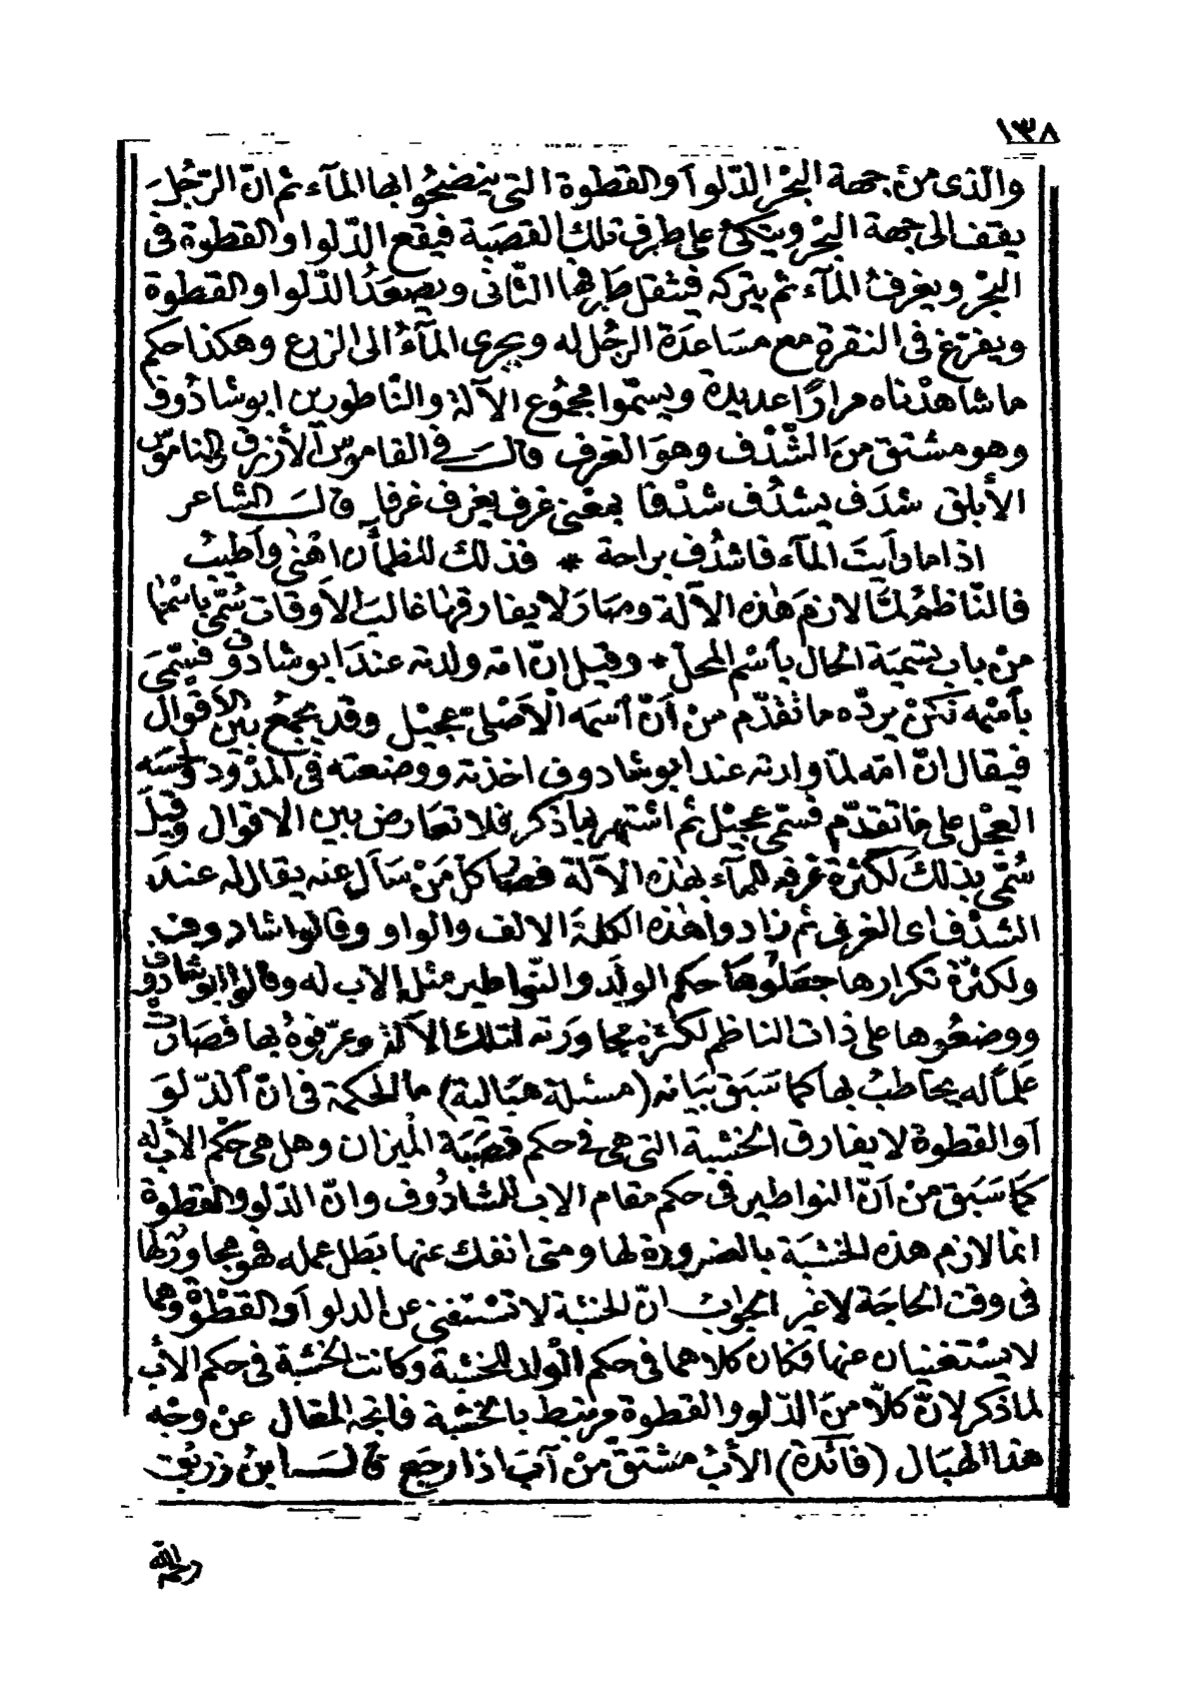 ١٣٨
والّذى من جهة البحْر الدّلو أو القطوة التى ينضحوا بها المآء ثم انّ الرّجُل
يقف الى جهة البحْر ويتكئ على طرف تلك القصَبة فيقع الدّلو او القطوة فى
البحْر ويغرفُ المآء ثم يتركه فيثقل طارفها الثّانى ويصعَدُ الدّلو او القطوة
ويفرّغ فى النقرة مع مسَاعدَة الرجُل له ويجرى المآءُ الى الزرع وهكذا حكم
ما شاهدْناه مرارًا عديدة ويسمّوا مجمُوع الآلة والنّاطورين ابو شادُوف
وهو مشتق من الشّدْف وهوَ الغرف قال فى القاموس الأزرق والناموس
الأبلق شدَف يشدُف شدْفا بمعْنى غرف يغرف غرفا قال الشاعر
اذا ما رأيتَ المآء فاشدُف براحة * فذلك للظمأن اهْنى وأطيبُ
فالنّاظمُ لمّا لازمَ هٰذه الآلة وصارَ لا يفارقها غالبَ الأوقات سُمّى باسْمها
منْ باب تسْميَة الحال بأسْم المحلّ * وقيل انّ امّه ولدته عندَ ابو شادوف فسمّىَ
بأسْمه لكنْ يردّه ما تقدّم منْ أنّ أسمَه الأصْلىّ عجيْل وقد يجمَعُ بين الأقوال
فيقال انّ امّه لمّا ولدته عند ابو شادوف اخذته ووضعته فى المدْوَد ولحسَه
العِجْل على ما تقدّم فسمّى عجيْل ثم اشتهر بما ذكر فلا تعارض بين الاقوال وقيلَ
سُمّى بذلك لكثرة غرفه للمآء بهٰذه الآلة فصار كلّ مَنْ سَأل عنه يقال له عندَ
الشدْف اى الغرف ثم زادوا هٰذه الكلمةَ الالف والواو وقالوا شادوف
ولكثرة تكرارها جعَلُوها حكم الولَد والنّواطير مثل الاب له وقالوا ابو شادوف
ووضعُوها على ذات الناظم لكثرة مجاورته لتلك الآلة وعرّفوهُ بها فصَارتْ
عَلمًا له يخاطبُ بها كما سَبَق بيَانه (مسئلة هبَالية) ما الحكمة فى انّ ألدّلوَ
أو القطوة لا يفارق الخشبة التى هى فى حكم قصَبَة الميْزان وهل هى حكْم الأب له
كما سَبَق منْ أنّ النواطير فى حكم مقام الاب للشادُوف وانّ الدّلو والقطوة
انما لازم هذه الخشبَة بالضرورة لها ومتى انفك عنها بَطل عمله فهو مجاورٌ لها
فى وقت الحاجَة لا غير الجوابُ انّ الخشبة لا تسْتغنى عن الدلو أو القطْوَة وهما
لا يسْتغنيان عنها فكان كلاهما فى حكم الْولد للخشبة وكانت الخشبَة فى حكم الأب
لما ذكر لانّ كلاّ منَ الدّلو والقطوة مرتبط بالخشبة فاتجه المقال عنْ وجْه
هذا الهبَال (فائدة) الأبُ مشتق منْ آبَ اذا رجَع قال ابنُ زريْق
رحمه الله